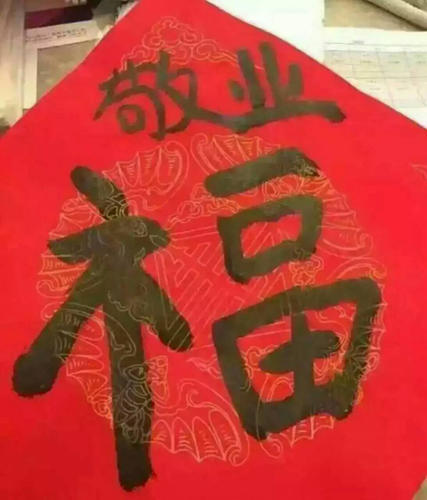 敬业
福